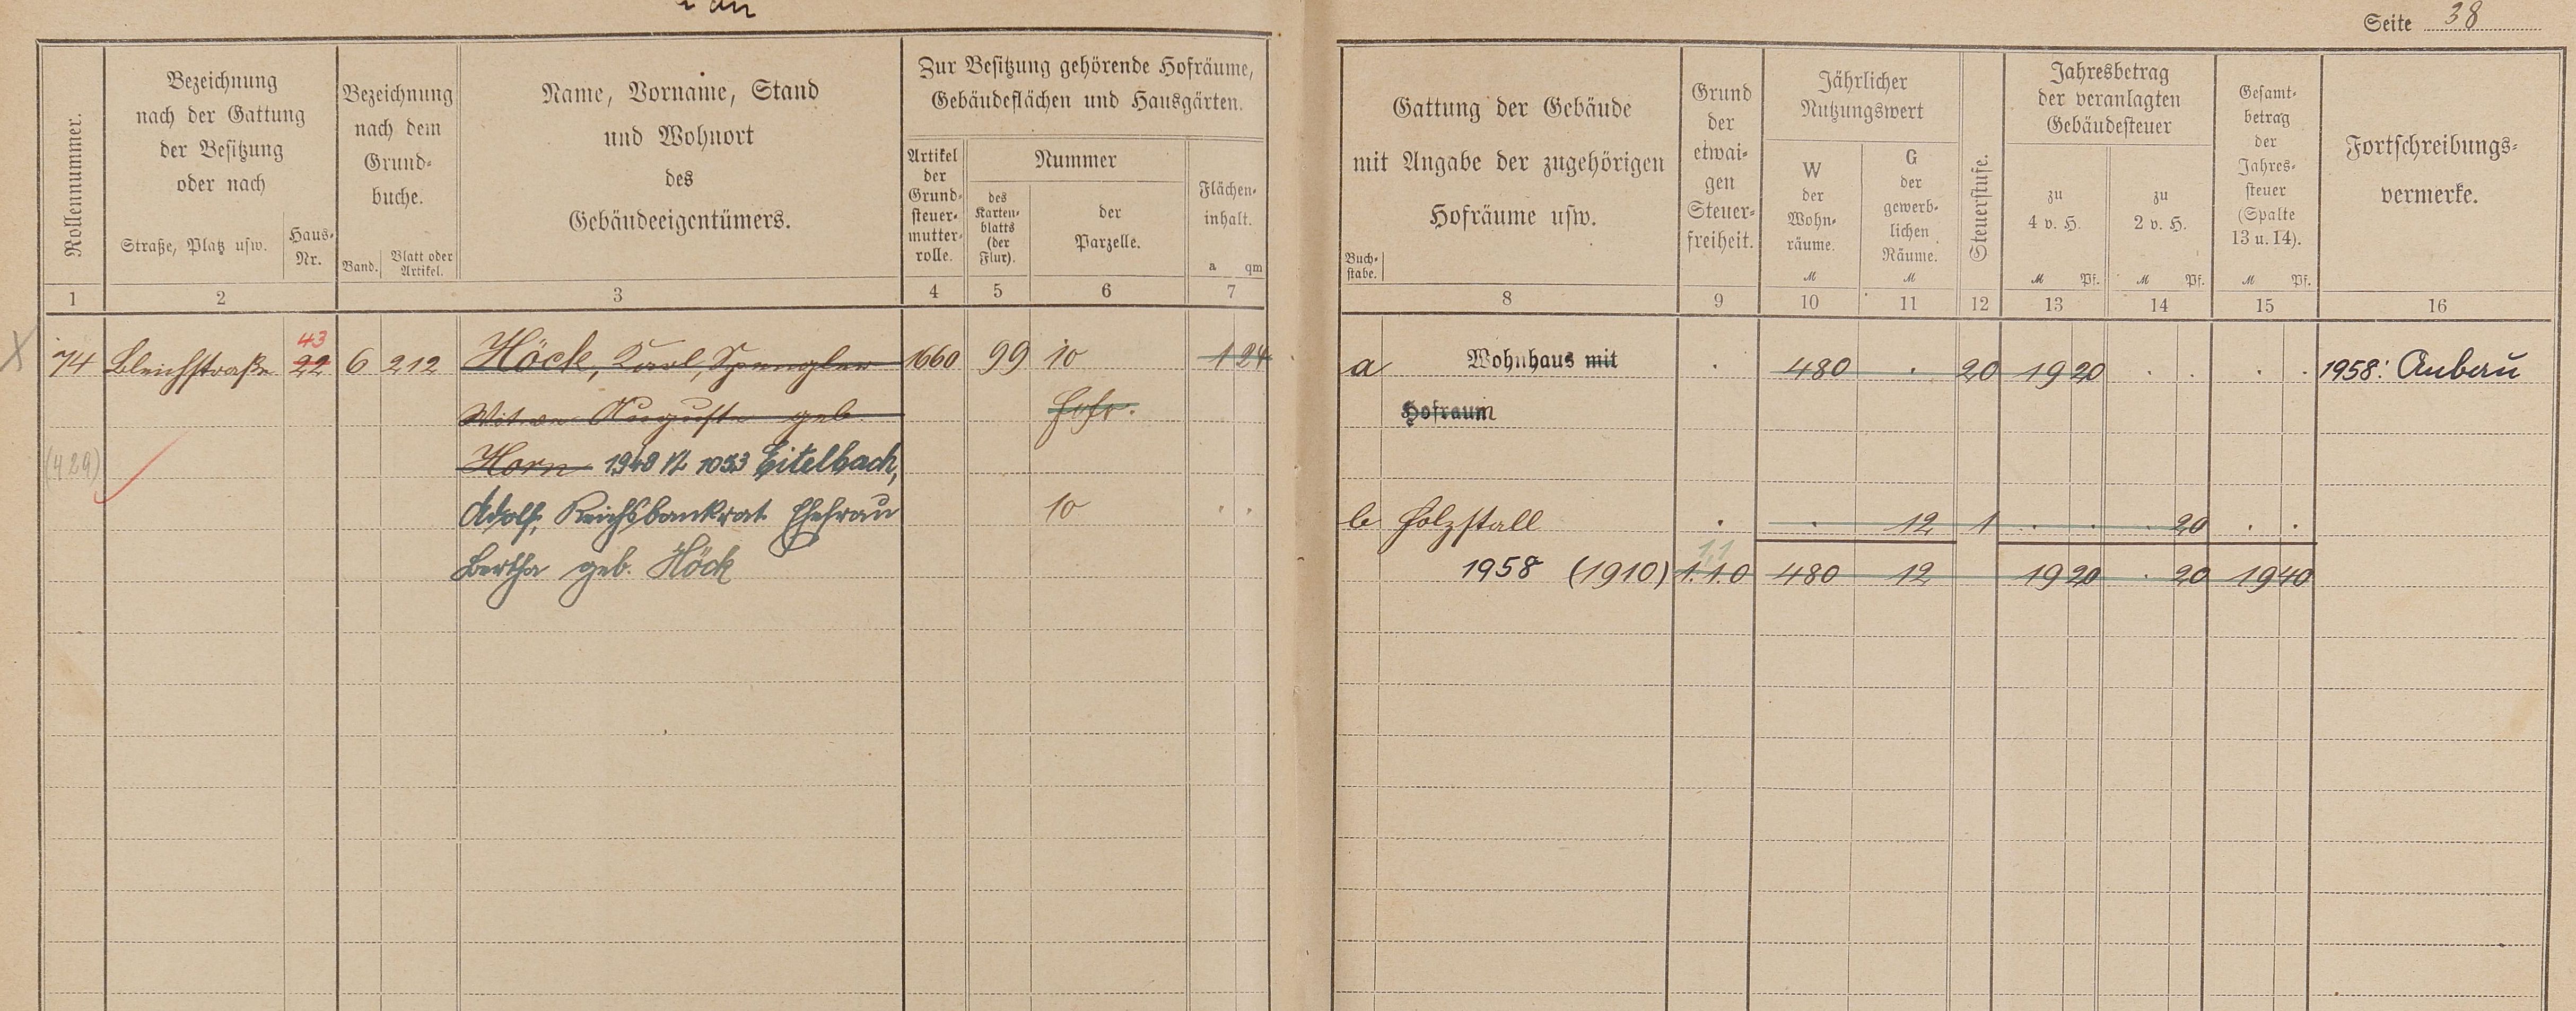 Seite 38
Rollennummer.
Bezeichnung
nach der Gattung
der Besitzung
oder nach
Straße, Platz usw.
Haus-
Nr.
Bezeichnung
nach dem
Grund-
buche.
Band.
Blatt oder
Artikel.
Name, Vorname, Stand
und Wohnort
des
Gebäudeeigentümers.
Zur Besitzung gehörende Hofräume,
Gebäudeflächen und Hausgärten.
Artikel
der
Grund-
steuer-
mutter-
rolle.
Nummer
des
Karten-
blatts
(der
Flur).
der
Parzelle.
Flächen-
inhalt.
a qm
Gattung der Gebäude
mit Angabe der zugehörigen
Hofräume usw.
Buch-
stabe.
Grund
der
etwai-
gen
Steuer-
freiheit.
Jährlicher
Nutzungswert
W
der
Wohn-
räume.
M
G
der
gewerb-
lichen
Räume.
M
Steuerstufe.
Jahresbetrag
der veranlagten
Gebäudesteuer
zu
4 v. H.
M Pf.
zu
2 v. H.
M Pf.
Gesamt-
betrag
der
Jahres-
steuer
(Spalte
13 u. 14).
M Pf.
Fortschreibungs-
vermerke.
1 2 3 4 5 6 7 8 9 10 11 12 13 14 15 16
43
74 Bleichstraße 22 6 212 Höck, Karl, Spengler 1660 99 10 1 24 a Wohnhaus mit . 480 . 20 19 20 . . . . 1958: Anbau
Witwe Auguste geb. Hofr. Hofraum
(429) Horn 1948 N 1053 Eitelbach,
Adolf, Reichsbankrat Ehefrau 10 . . b Holzstall . . 12 1 . . . 20 . .
1,1
Bertha geb. Höck 1958 (1910) 1.1.0 480 12 19 20 . 20 19 40